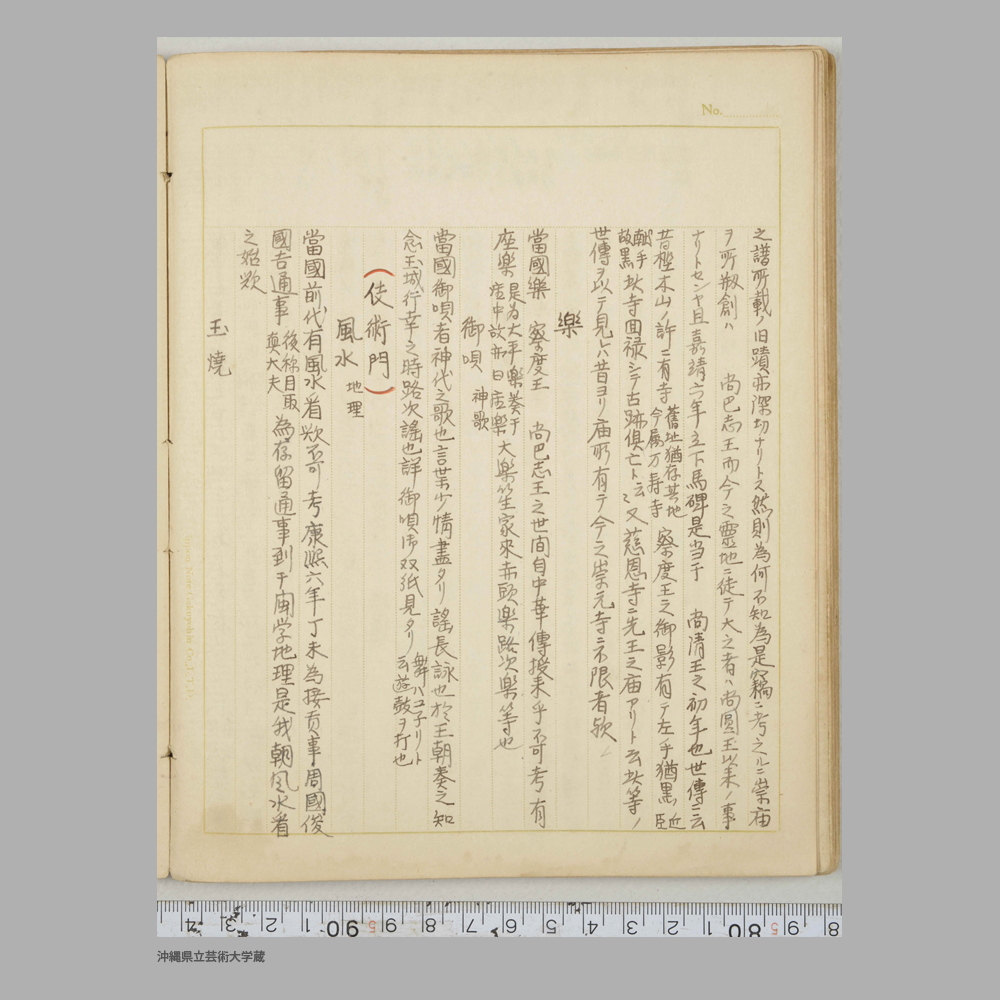 No.
之譜所載ノ旧蹟亦深切ナリトス然則為何不知為是竊ニ考之ルニ崇庙
ヲ所剏創ハ 尚巴志王而今之靈地ニ徒テ大之者ハ尚圓王以来ノ事
ナリトセンヤ且嘉靖六年立下馬碑是当于 尚清王之初年也世傳ニ云
昔極木山ノ許ニ有寺 舊址猶存其地今属万寿寺 察度王之御影有テ左手猶黒 近臣
献手故黒 此寺回禄シテ古跡倶亡ト云々又慈恩寺ニ先王之庙アリト云此等ノ
世傳ヲ以テ見レハ昔ヨリ庙所有テ今之崇元寺ニ不限者欤
樂
當國樂 察度王 尚巴志王之世间自中華傳授来乎不可考有
座樂 是為大平樂奏于座中故亦曰座樂 大樂笙家來赤頭樂路次樂等也
御唄 神歌
當國御唄者神代之歌也言葉少情盡タリ謡長詠也於王朝奏之知
念玉城行幸之時路次謡也詳御唄御双紙見タリ 舞ハコ子リト云遊鼓ヲ打也
(伎術門)
風水 地理
當國前代有風水看欤不可考康熙六年丁未為接貢事周國俊
國吉通事 後称目取真大夫 為存留通事到于闽学地理是我朝风水看
之始欤
玉燒
沖縄県立芸術大学蔵